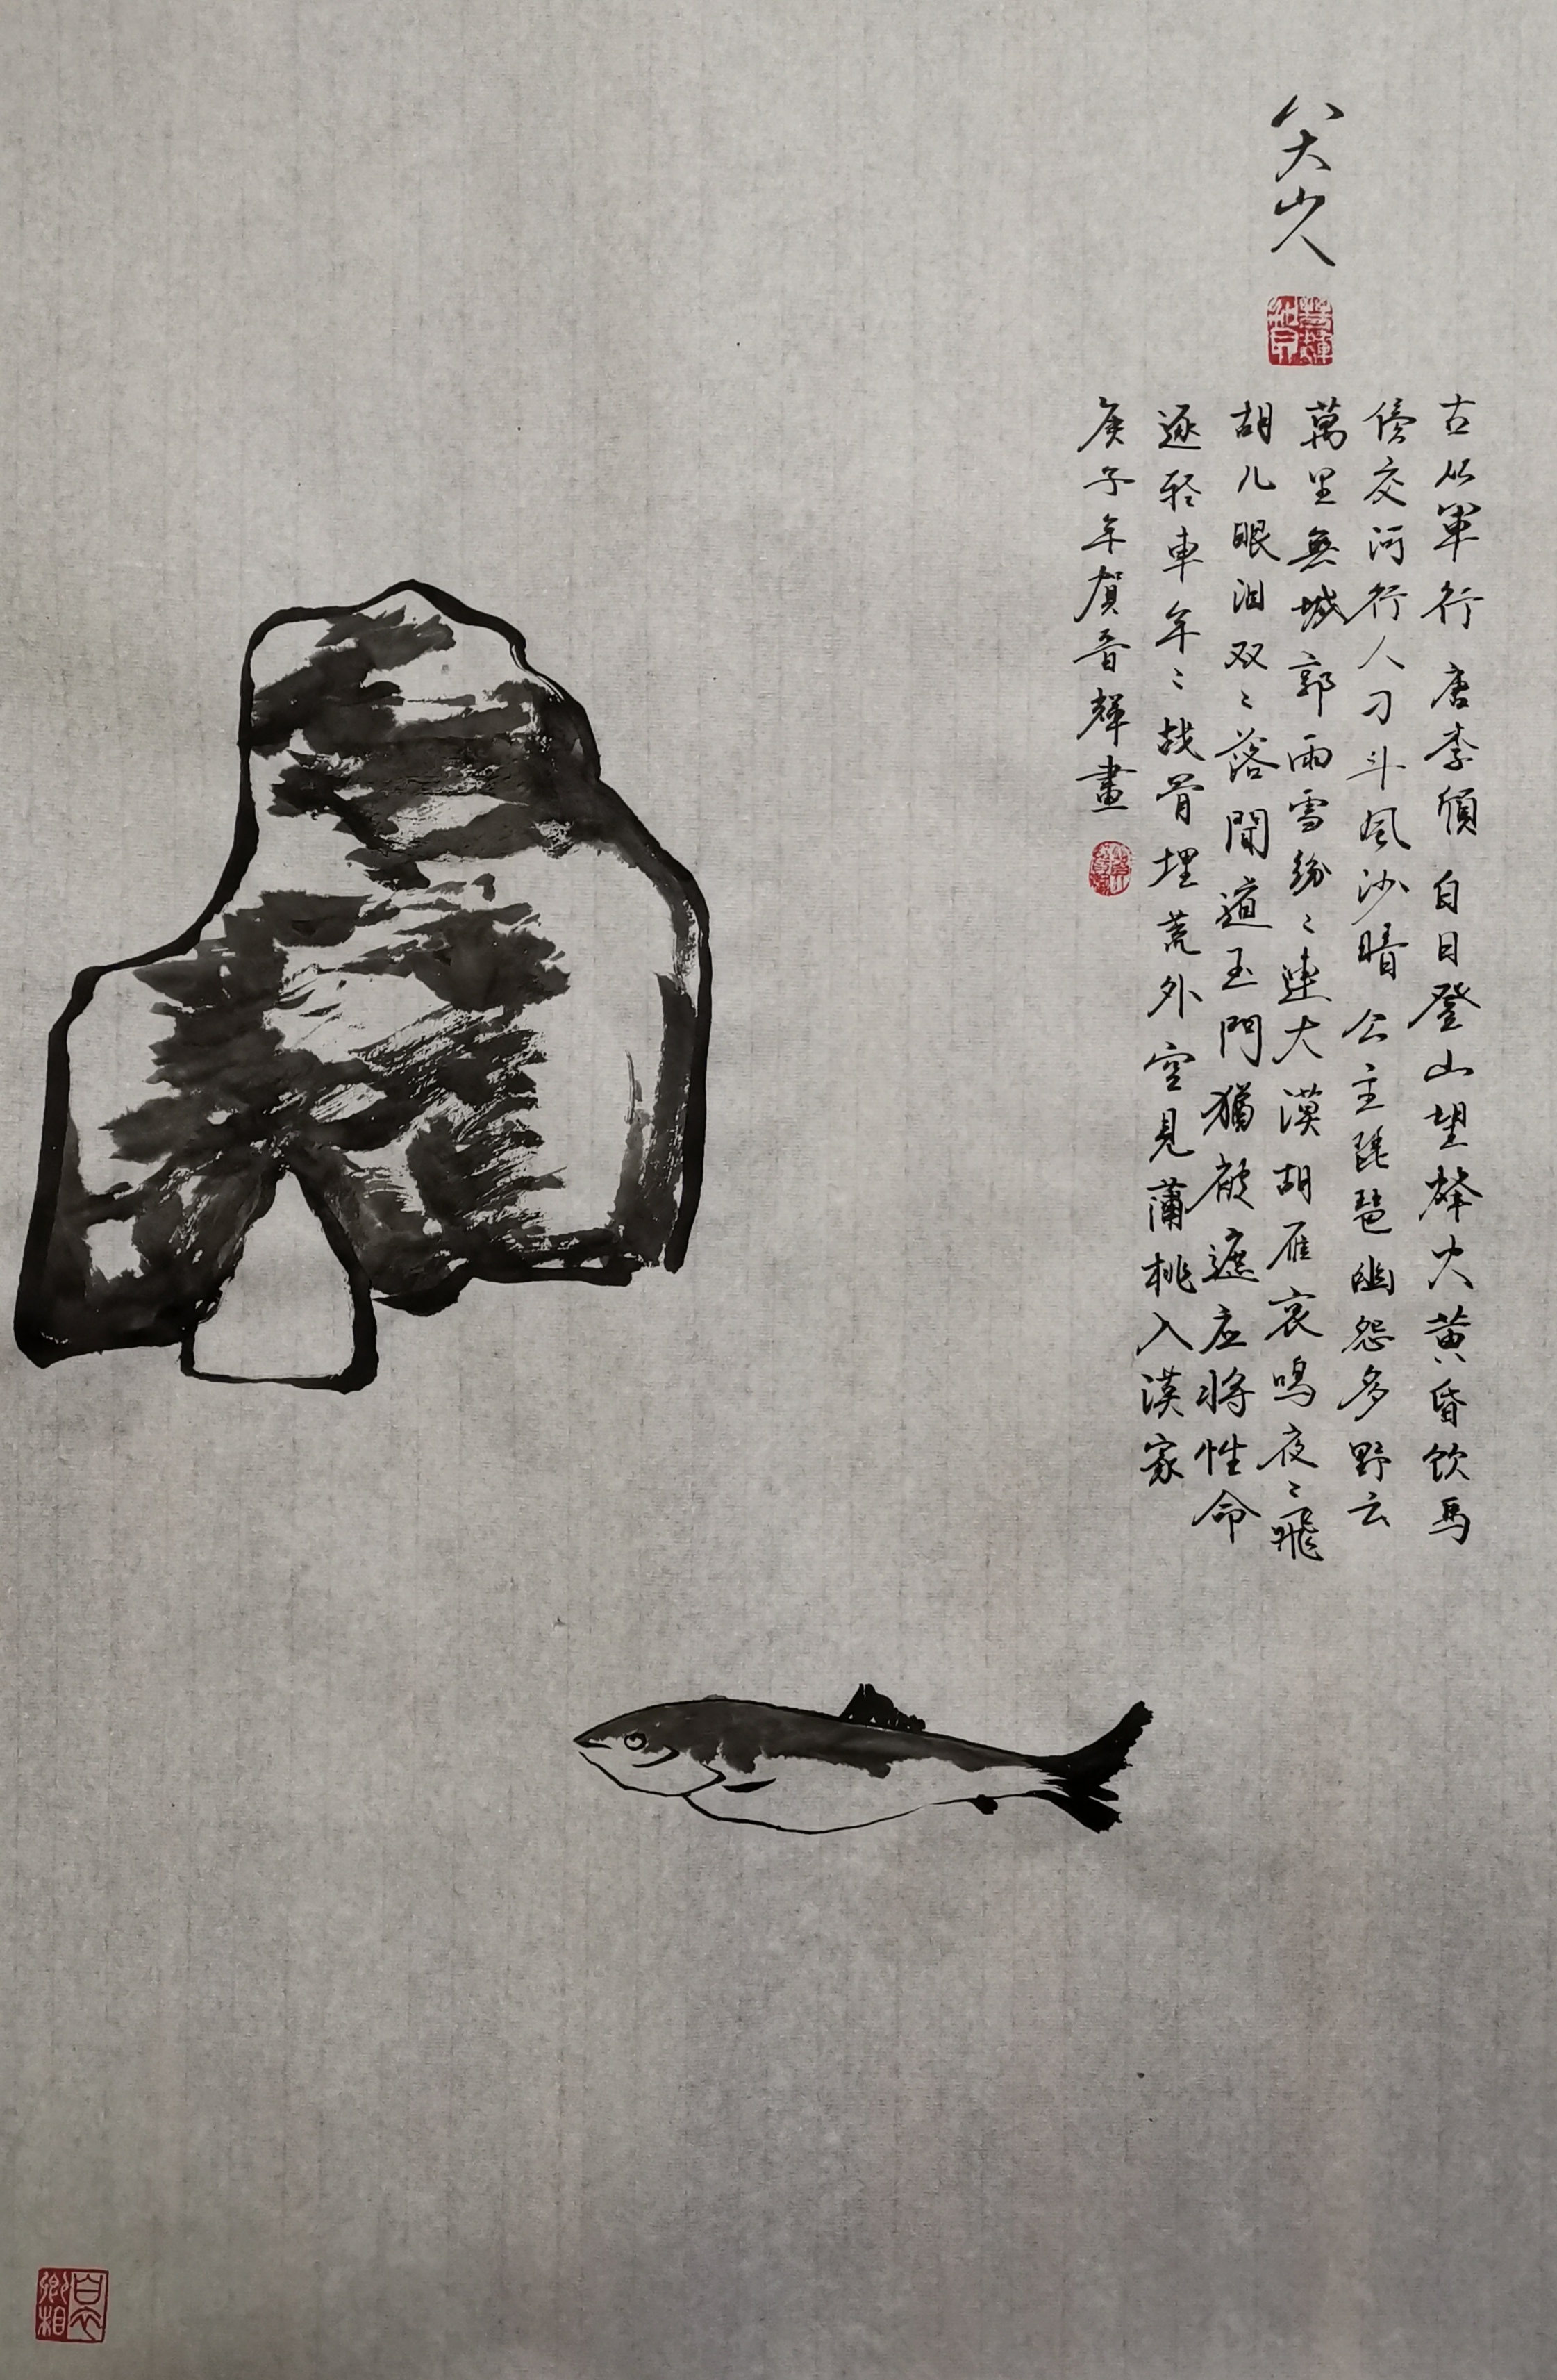 八大山人
古从軍行 唐李頎 白日登山望烽火黄昏饮馬
傍交河行人刁斗風沙暗公主琵琶幽怨多野云
萬里無城郭雨雪紛〻連大漠胡雁哀鳴夜〻飛
胡儿眼泪双〻落聞道玉門猶被遮应将性命
逐轻車年〻战骨埋荒外空見蒲桃入漢家
庚子年賀音輝畫
白衣卿相